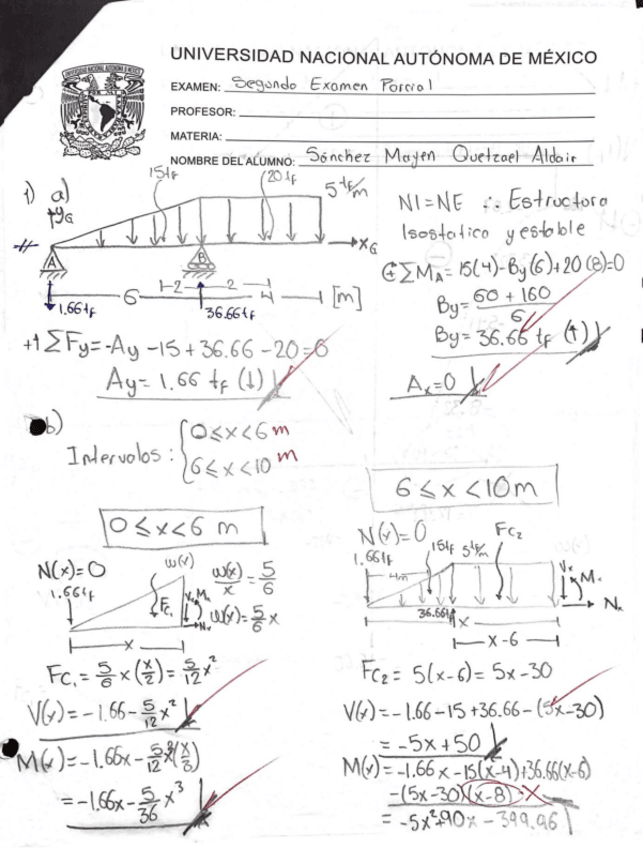 UNIVERSIDAD NACIONAL AUTÓNOMA DE MÉXICO
EXAMEN: Segundo Examen Parcial
PROFESOR:
MATERIA:
NOMBRE DEL ALUMNO: Sánchez Mayen Quetzael Aldair
1) a)
15tf 20tf 5 tf/m
yG xG
A B
6 2 2 4 [m]
1.66tf 36.66tf
NI=NE ∴ Estructura
Isostatica y estable
ΣMA = 15(4)-By(6)+20(8)=0
By= 60 + 160
6
By= 36.66 tf (↑)
+↑ΣFy=-Ay -15+36.66-20=0
Ay= 1.66 tf (↓)
Ax=0
b)
Intervalos: {0≤x<6 m
6≤x<10 m
0≤x<6 m
N(x)=0
1.66tf
w(x)
Fc1 Vx Mx Nx
x
w(x)/x = 5/6
w(x)= 5/6 x
Fc1= 5/6 x(x/2)= 5/12 x²
V(x)= -1.66- 5/12 x²
M(x)= -1.66x- 5/12 x²(x/3)
= -1.66x- 5/36 x³
6≤x<10m
N(x)=0
1.66tf 15tf 5tf/m Fc2
4m Vx Mx Nx
36.66tf
x
x-6
Fc2= 5(x-6)= 5x-30
V(x)= -1.66-15+36.66-(5x-30)
= -5x+50
M(x)= -1.66x-15(x-4)+36.66(x-6)
-(5x-30)(x-8) x
= -5x²+90x-399.96